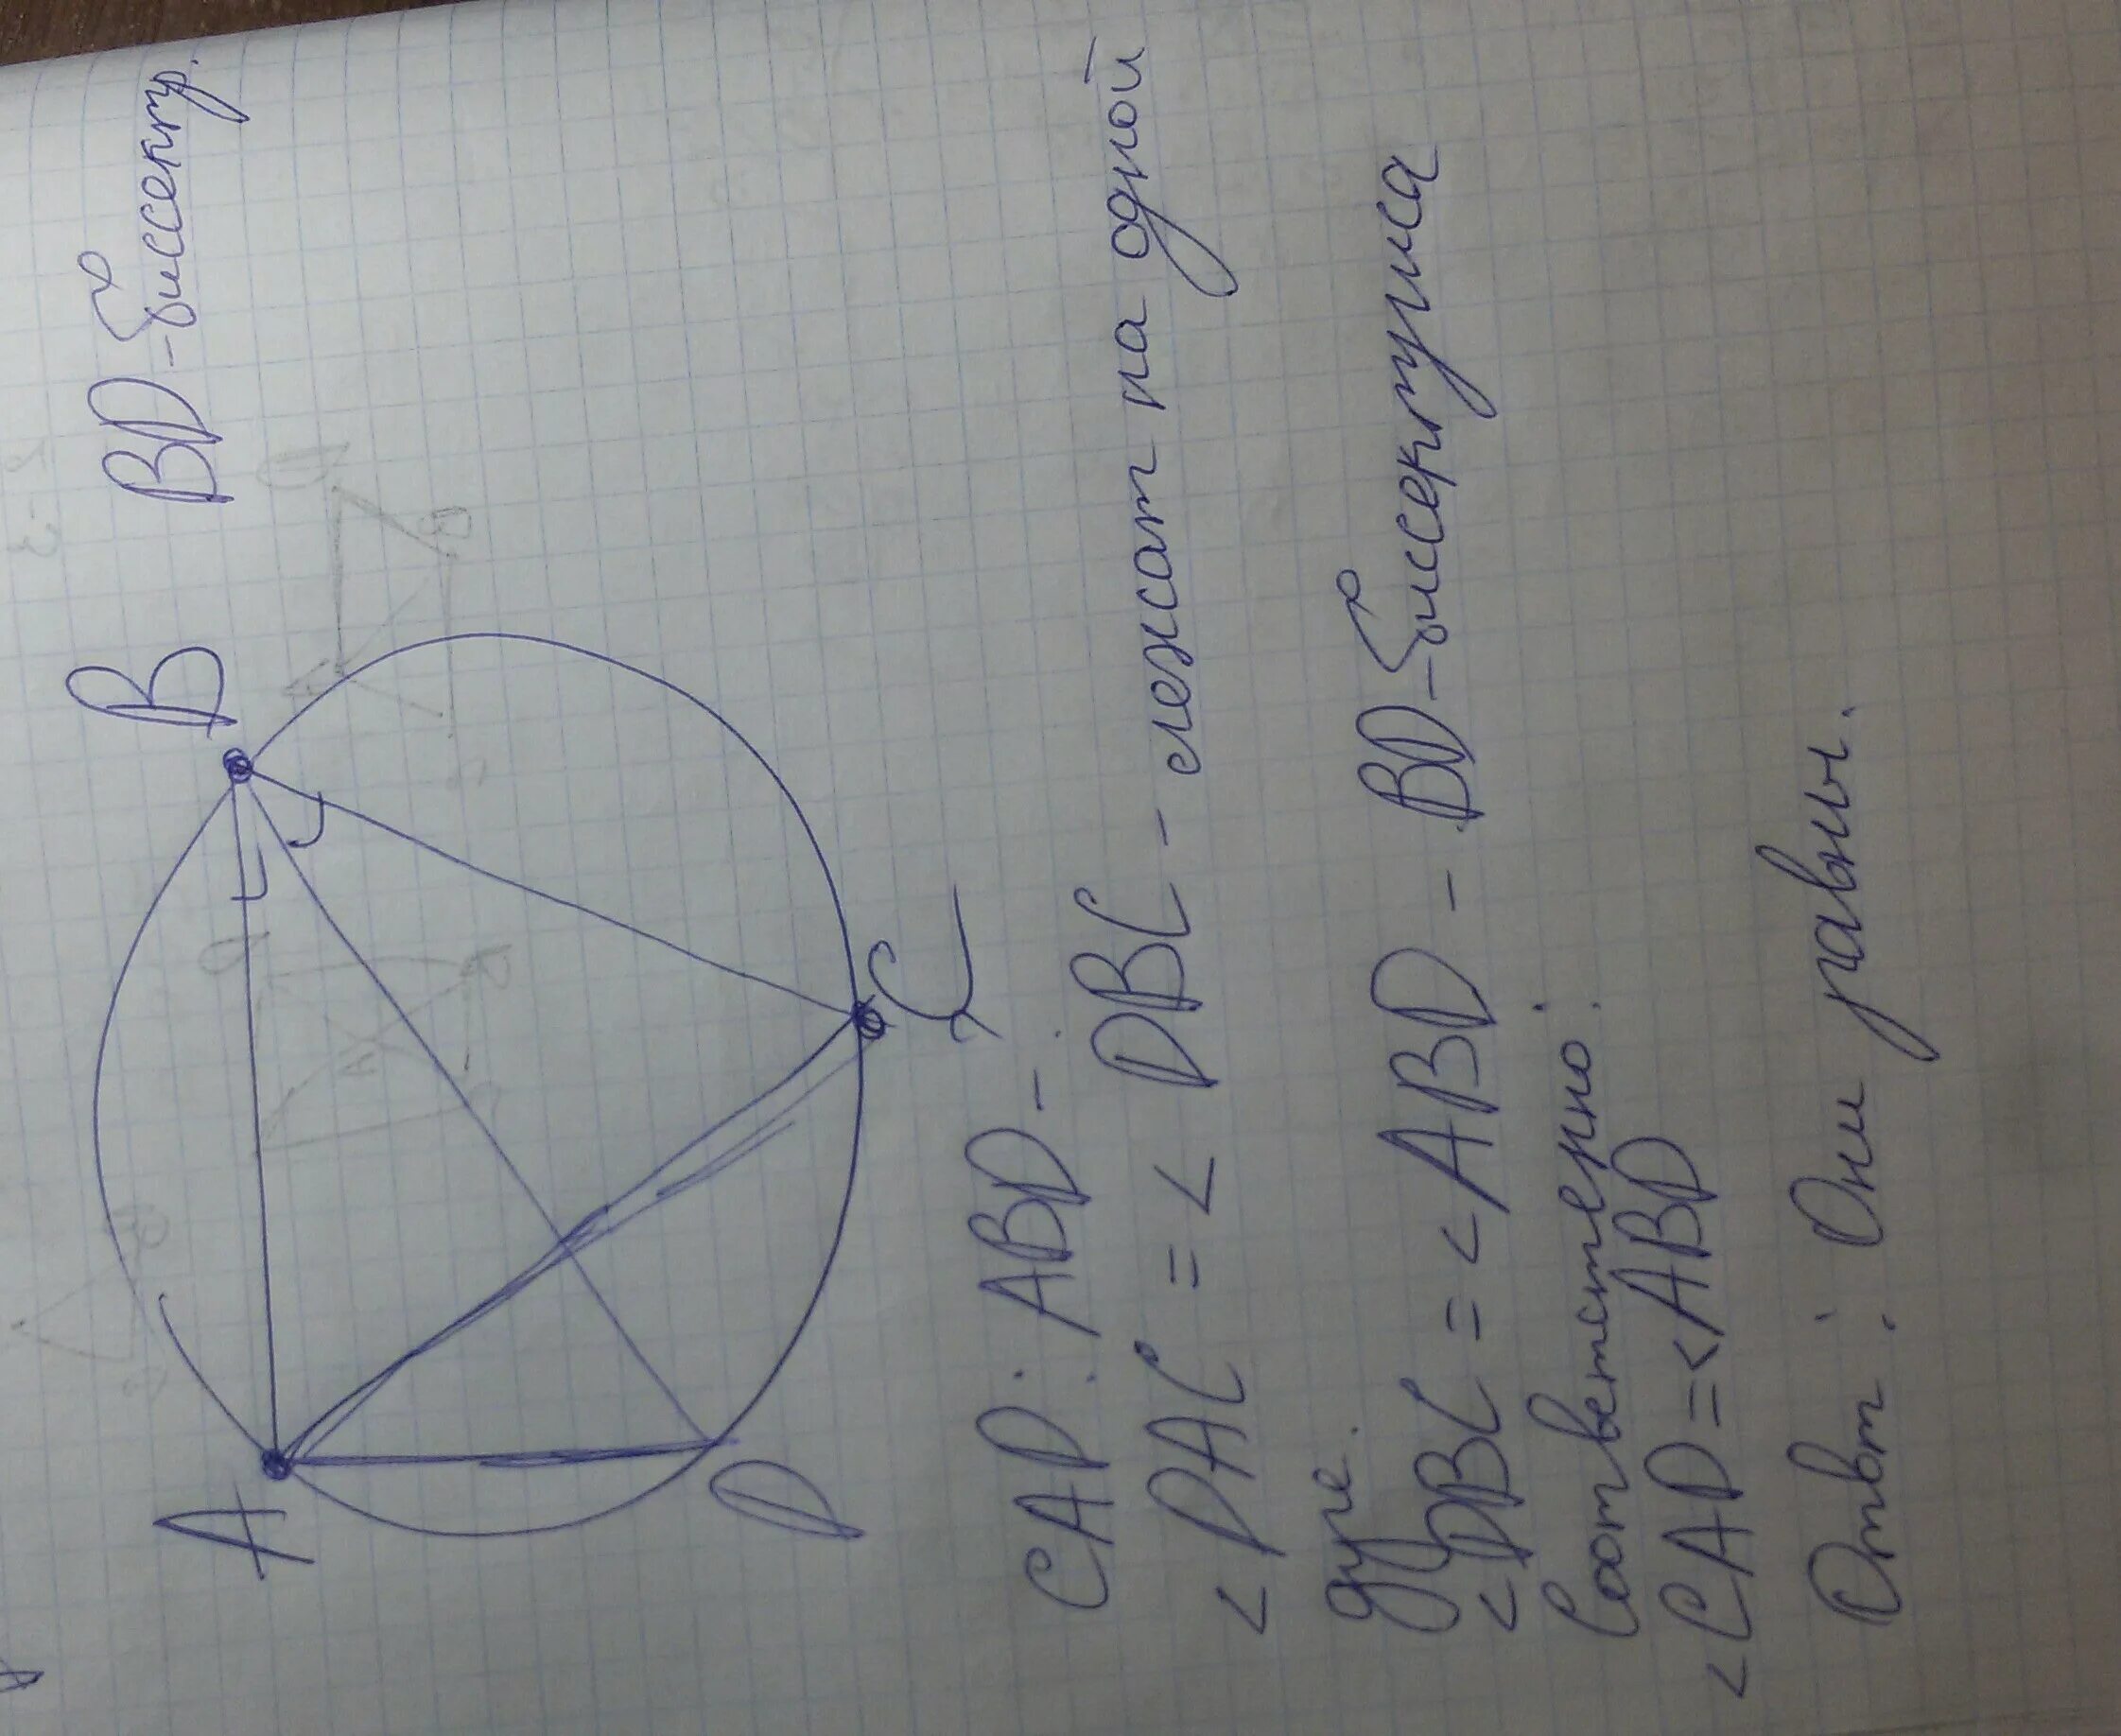 BD-биссектр.
B
A
C
D
CAD : ABD -
<DAC = < DBC - лежат на одной
дуге.
<DBC = < ABD - BD-биссектриса
Соответственно:
<CAD = <ABD
Ответ: Они равны.